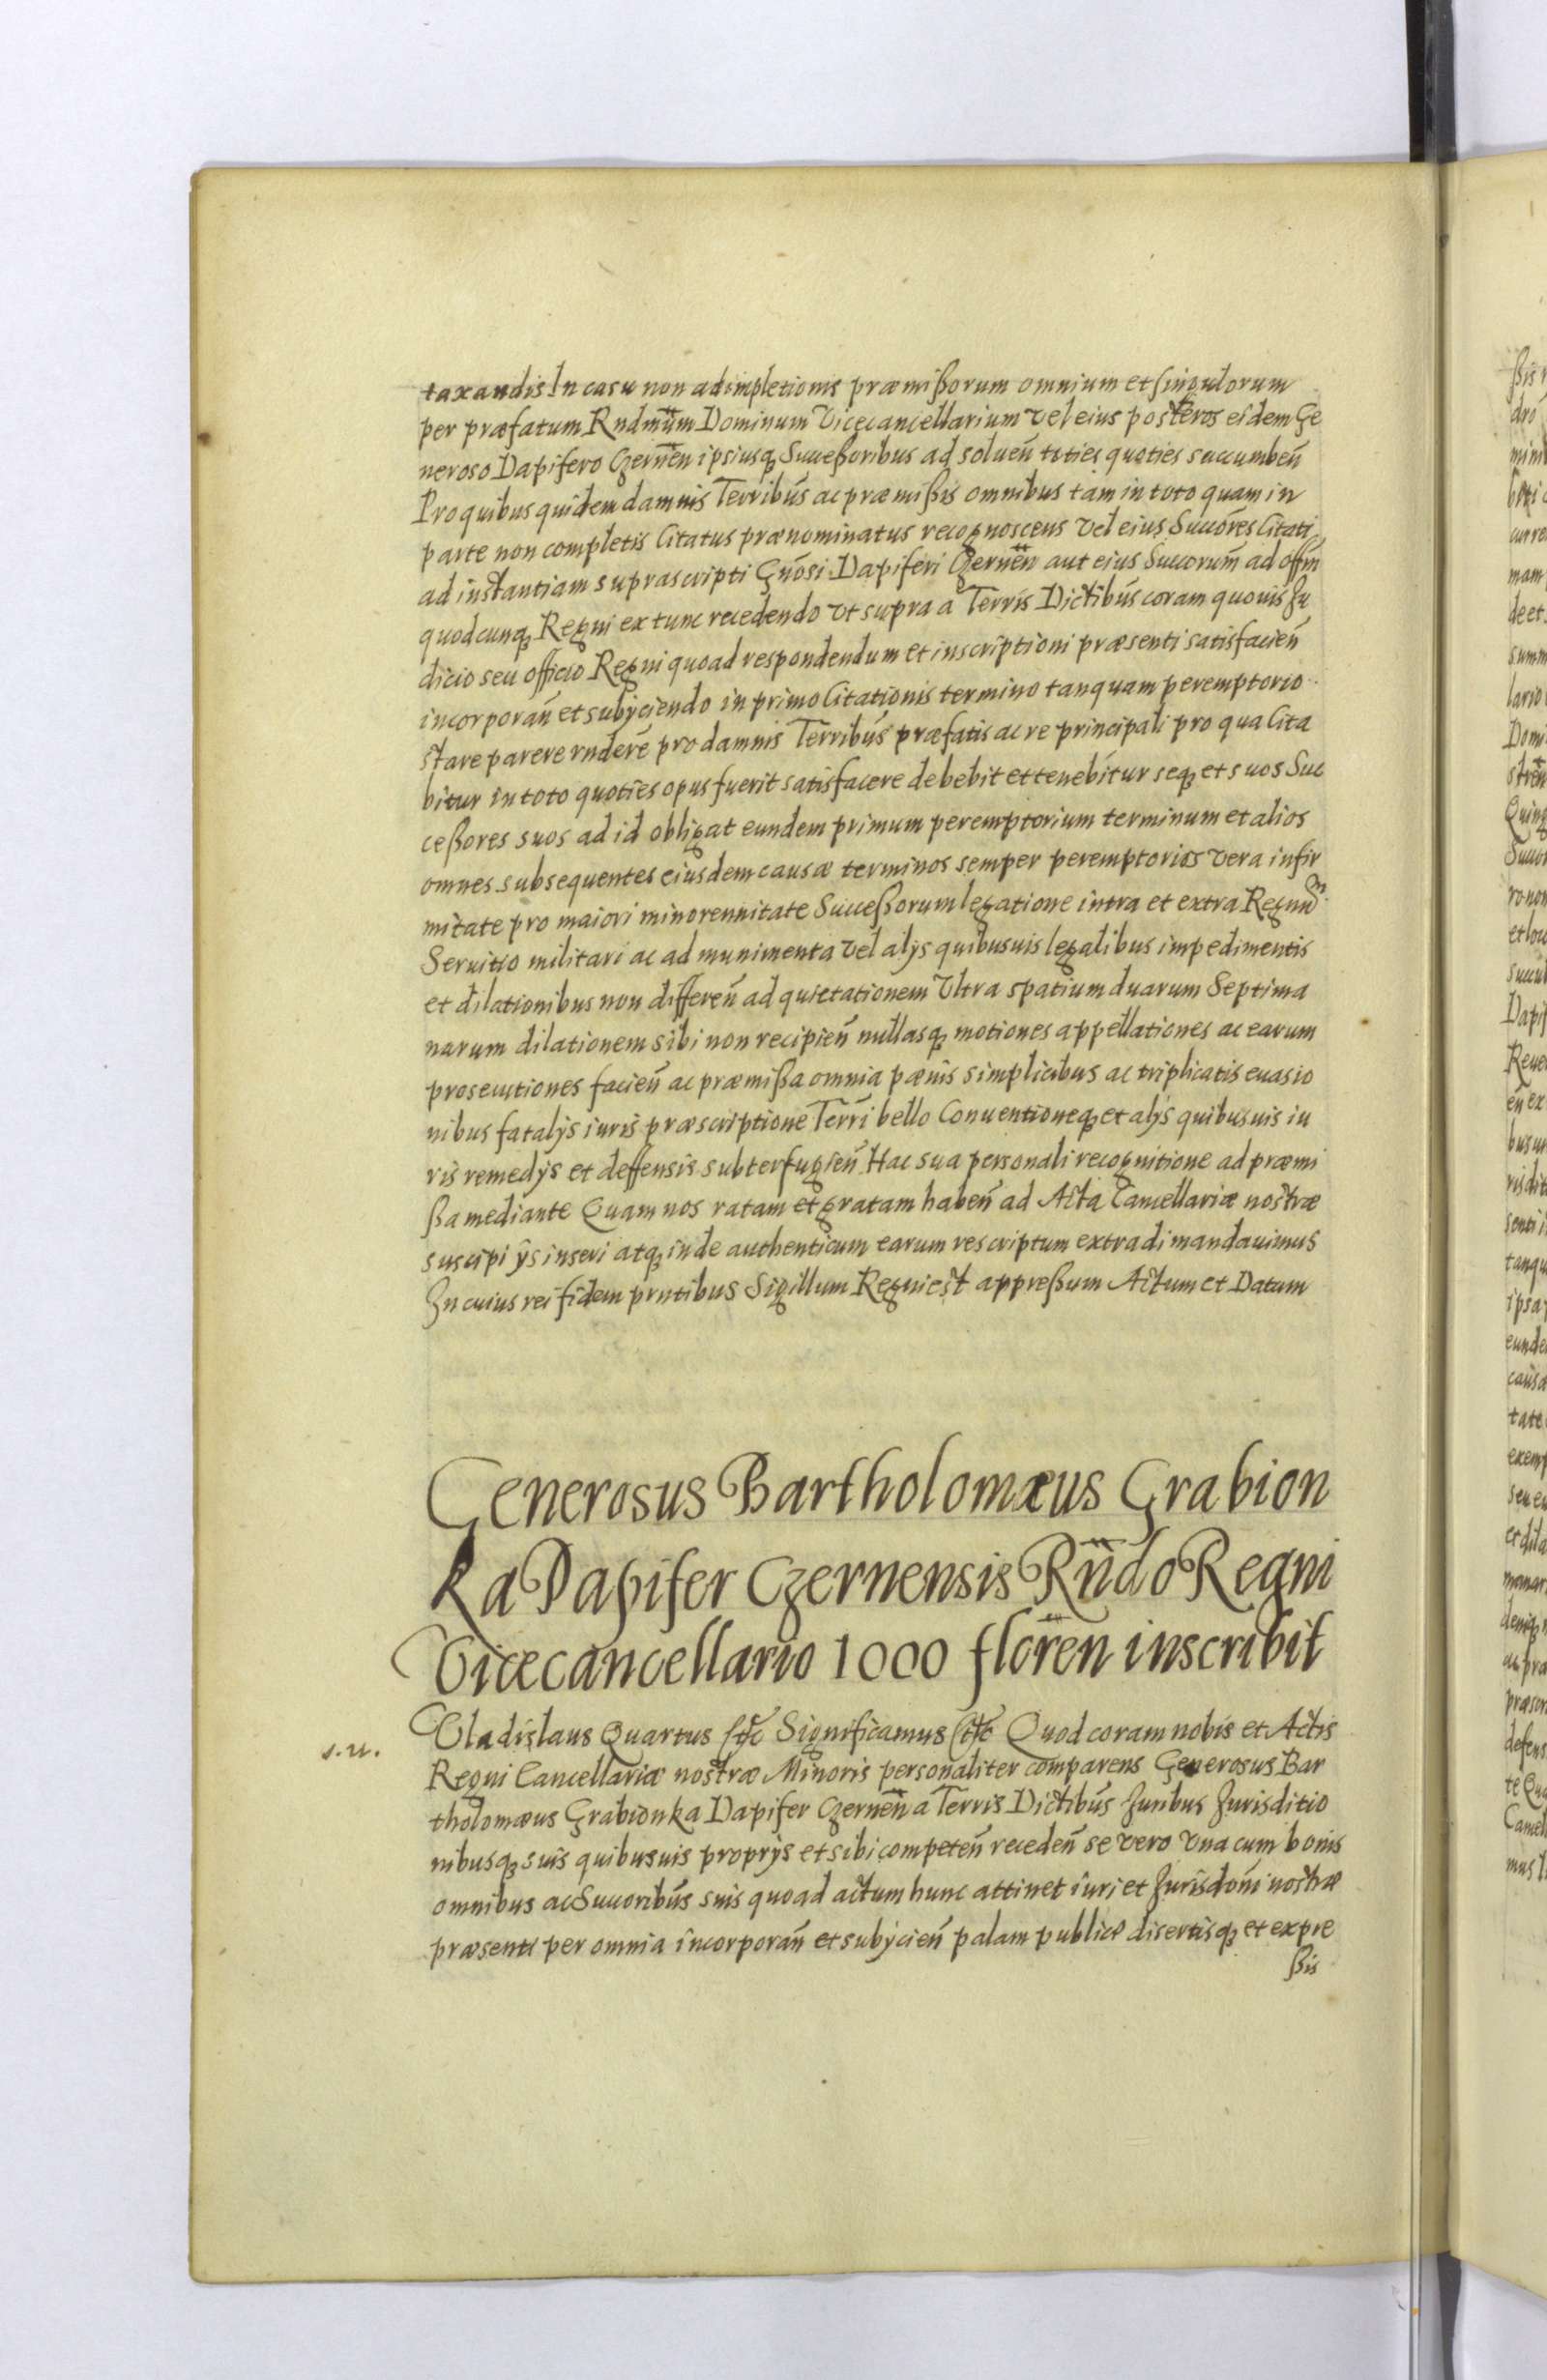 taxandis In casu non adimpletionis præmißorum omnium et singulorum
per præfatum Rndmum Dominum Vicecancellarium vel eius posteros eidem Ge
neroso Dapifero Czerneñ ipsiusq Succeßoribus ad solueñ toties quoties succumbeñ
Pro quibus quidem damnis Terribus ac præmißis omnibus tam in toto quam in
parte non completis Citatus prænominatus recognoscens vel eius Succores Citati
ad instantiam suprascripti Gnosi Dapiferi Czerneñ aut eius Succorum ad offm
quodcunq Regni ex tunc recedendo vt supra a Terris Dictibus coram quouis Ju
dicio seu officio Regni quoad respondendum et inscriptioni præsenti satisfacieñ
incorporañ et subÿciendo in primo Citationis termino tanquam peremptorio
stare parere rndere pro damnis Terribus præfatis ac re principali pro qua Cita
bitur in toto quoties opus fuerit satisfacere debebit et tenebitur seq et suos Suc
ceßores suos ad id obligat eundem primum peremptorium terminum et alios
omnes subsequentes eiusdem causæ terminos semper peremptorios vera infir
mitate pro maiori minorennitate Succeßorum legatione intra et extra Regnum
Seruitio militari ac ad munimenta vel alÿs quibusuis legalibus impedimentis
et dilationibus non differeñ ad quietationem Vltra spatium duarum Septima
narum dilationem sibi non recipieñ nullasq motiones appellationes ac earum
prosecutiones facieñ ac præmißa omnia pænis simplicibus ac triplicatis euasio
nibus fatalÿs iuris præscriptione Terri bello Conuentioneq et alÿs quibusuis iu
ris remedÿs et deffensis subterfugieñ Hac sua personali recognitione ad præmi
ßa mediante Quam nos ratam et gratam habeñ ad Acta Cancellariæ nostræ
suscipi ÿs inseri atq inde authenticum earum rescriptum extradi mandauimus
In cuius rei fidem pntibus Sigillum Regni est appreßum Actum et Datum
Generosus Bartholomæus Grabion
Ka Dapifer Czernensis Rñdo Regni
Vicecancellario 1000 floreñ inscribit
s.n.
Vladislaus Quartus etc Significamus etc Quod coram nobis et Actis
Regni Cancellariæ nostræ Minoris personaliter comparens Generosus Bar
tholomæus Grabionka Dapifer Czerneñ a Terris Dictibus Juribus Jurisditio
nibusq suis quibusuis proprÿs et sibi competeñ recedeñ se vero vna cum bonis
omnibus ac Succoribus suis quoad actum hunc attinet iuri et Jurisdoni nostræ
præsenti per omnia incorporañ et subÿcieñ palam publice disertisq et expre
ßis